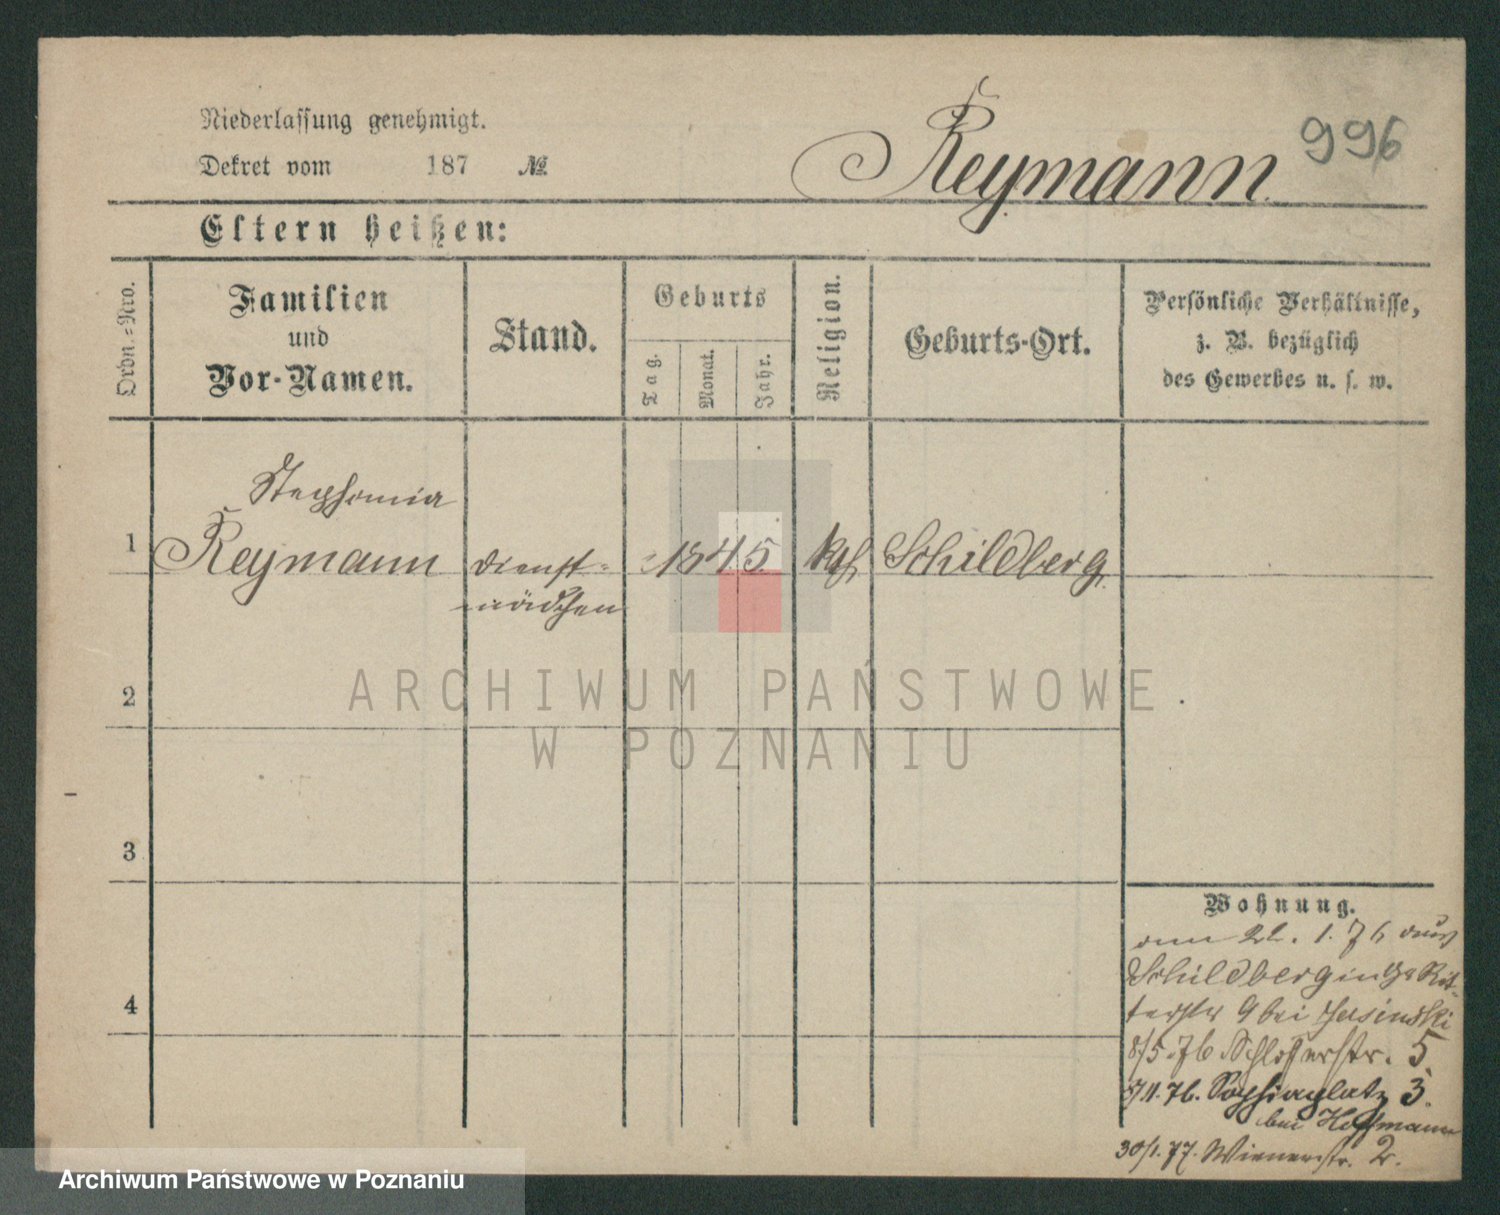 Niederlassung genehmigt.
Dekret vom 187 №
Reymann
996
Eltern heißen:
Ordn.=Nro.
Familien
und
Vor-Namen.
Stand.
Geburts
Tag.
Monat.
Jahr.
Religion.
Geburts-Ort.
Persönliche Verhältnisse,
z. B. bezüglich
des Gewerbes u. s. w.
Stephania
1 Reymann Dienst= 1845 kth Schildberg
mädchen
2
ARCHIWUM PAŃSTWOWE
W POZNANIU
3
4
Wohnung.
am 22. 1. 76 aus
Schildberg in Rit-
terstr 9 bei Jasinski
8/5.76 Schlosserstr. 5
76. Sophienplatz 3.
bei Hoffmann
30/1.77. Wienerstr. 2.
Archiwum Państwowe w Poznaniu